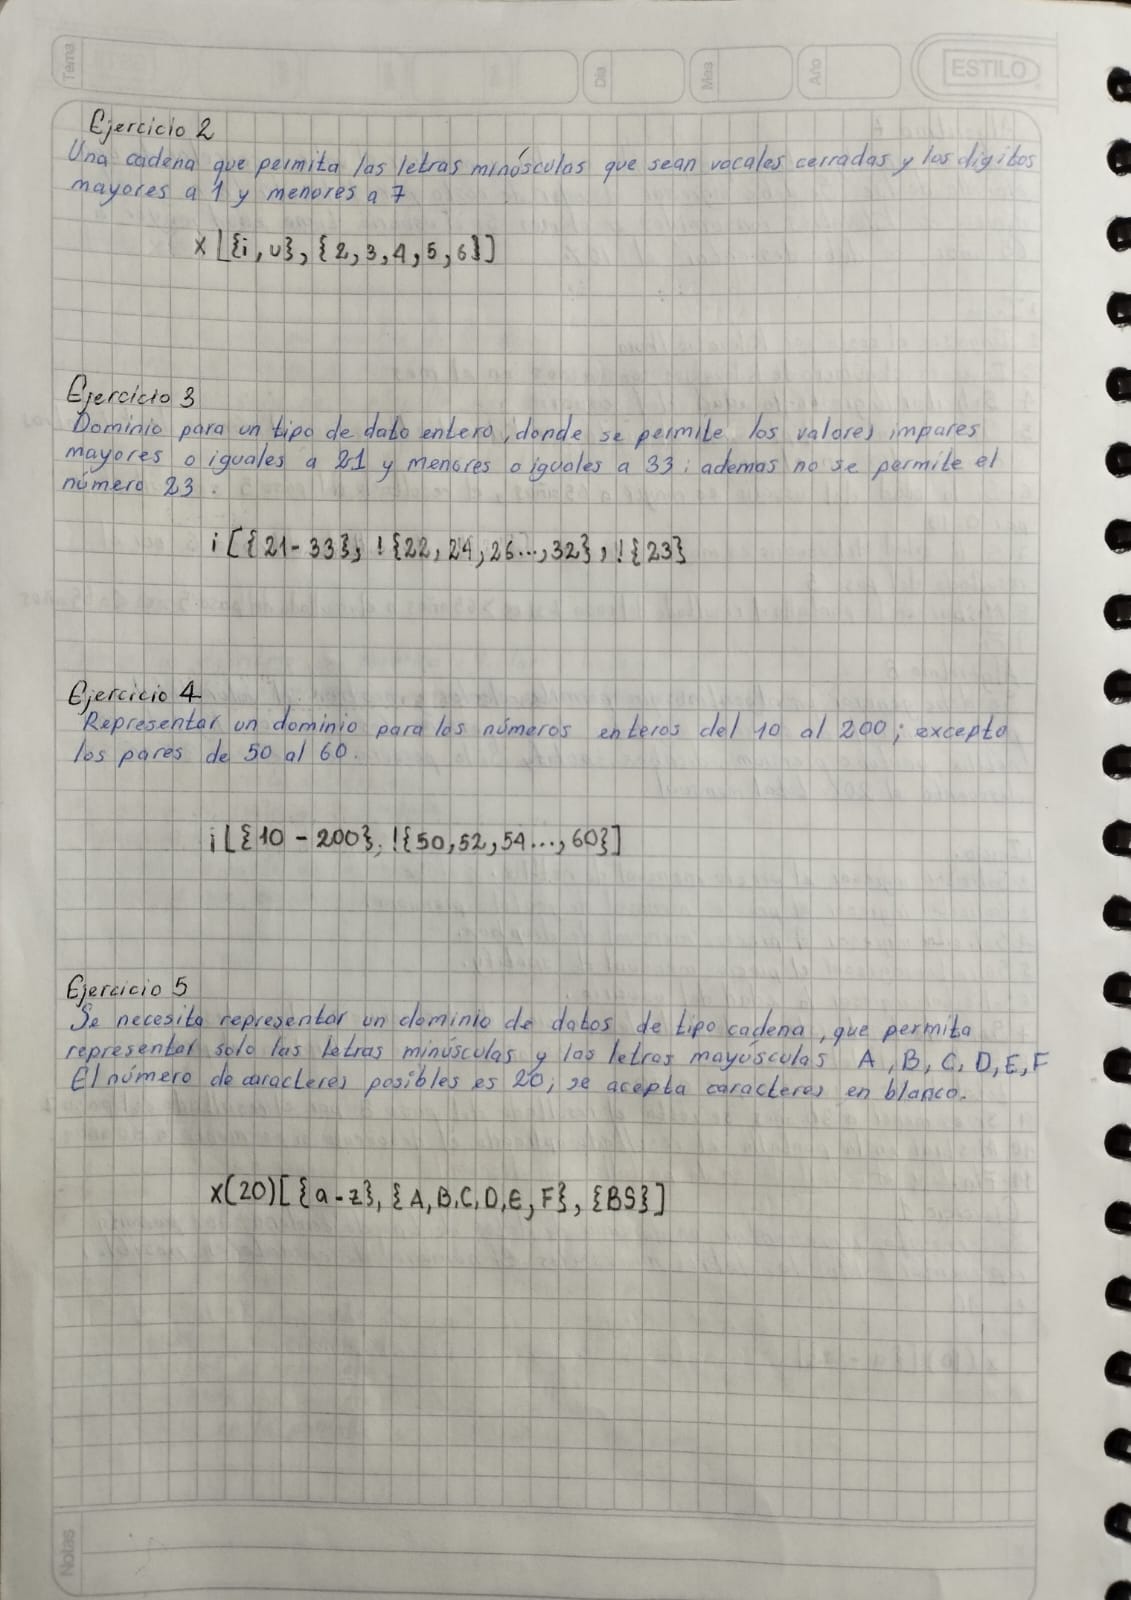 Tema
Dia
Mes
Año
ESTILO
Ejercicio 2
Una cadena que permita las letras minúsculas que sean vocales cerradas y los digitos
mayores a 1 y menores a 7
x[{i, u}, {2, 3, 4, 5, 6}]
Ejercicio 3
Dominio para un tipo de dato entero, donde se permite los valores impares
mayores o iguales a 21 y menores o iguales a 33; ademas no se permite el
número 23.
i[{21-33}, !{22, 24, 26..., 32}, !{23}
Ejercicio 4
Representar un dominio para los números enteros del 10 al 200; excepto
los pares de 50 al 60.
i[{10 - 200}, !{50, 52, 54..., 60}]
Ejercicio 5
Se necesita representar un dominio de datos de tipo cadena, que permita
representar solo las letras minúsculas y las letras mayúsculas A, B, C, D, E, F
El número de caracteres posibles es 20; se acepta caracteres en blanco.
x(20)[{a-z}, {A, B, C, D, E, F}, {BS}]
Notas